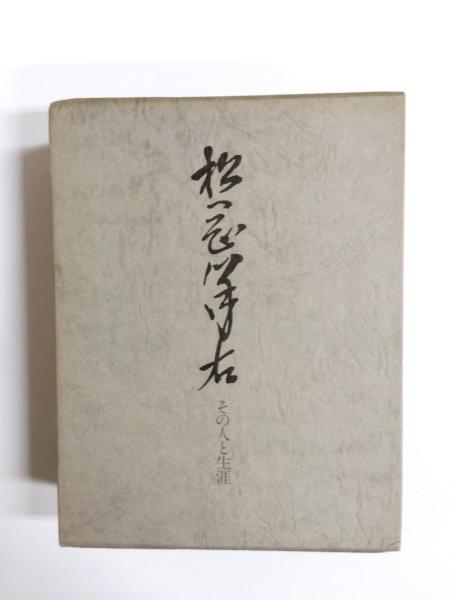 松岡洋右
その人と生涯